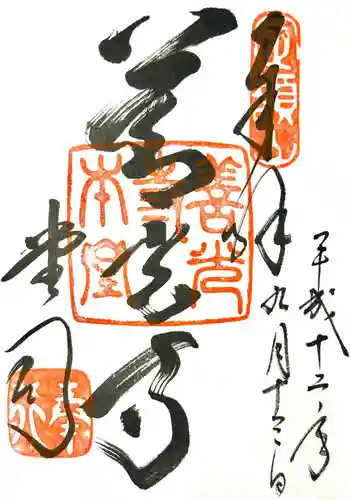 奉拝
平成十二年
九月十三日
善光寺
堂司
善光寺本堂